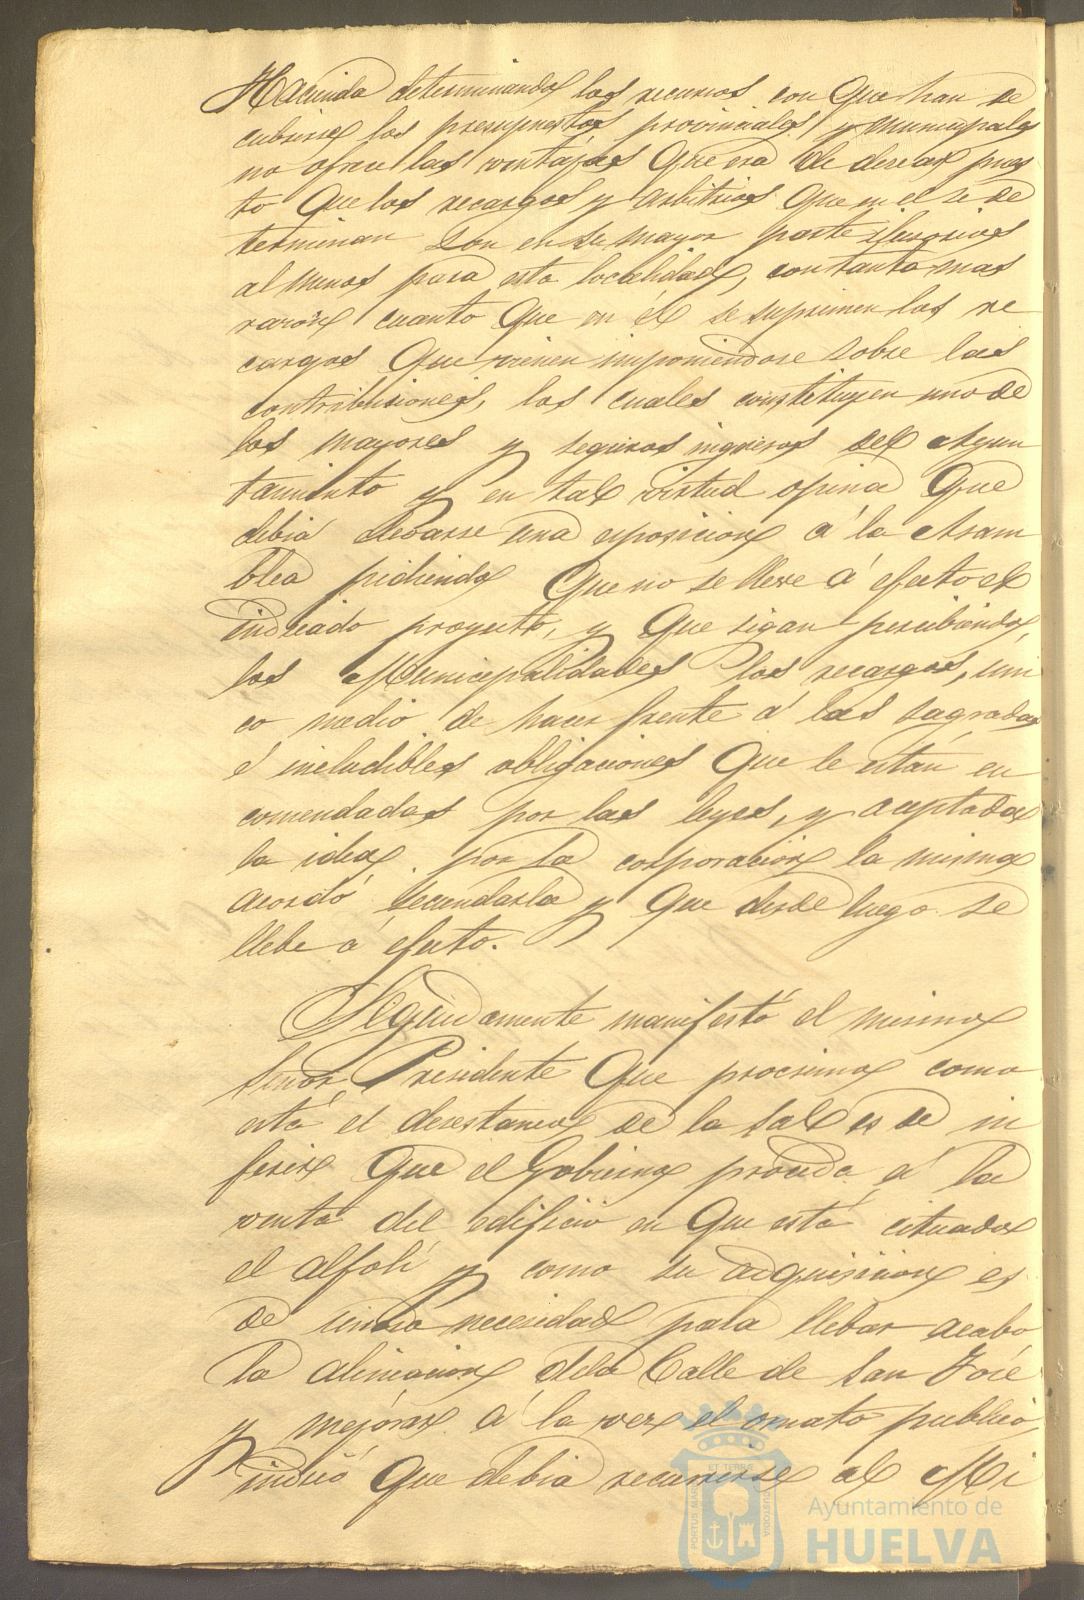 Hacienda determinando los recursos con que han de
cubrirse los presupuestos provinciales y municipales
no ofrece las ventajas que era de desear pues
to que los recargos y arbitrios que en el se de
terminan son en su mayor parte ilusorios
al menos para esta localidad, con tanta mas
razon cuanto que en él se suprimen los re
cargos que vienen imponiendose sobre las
contribuciones, los cuales constituyen uno de
los mayores y seguros ingresos del Ayun
tamiento y en tal virtud opina que
debia elevarse una esposicion á la Asam
blea pidiendo que no se lleve á efecto el
indicado proyecto, y que sigan percibiendo
las Municipalidades los recargos, uni
co medio de hacer frente á las sagradas
é ineludibles obligaciones que le están en
comendadas por las leyes, y aceptada
la idea por la corporacion la misma
acordó secundarla y que desde luego se
llebe á efecto.
Seguidamente manifestó el mismo
Señor Presidente que procsimo como
está el desestanco de la sal es de in
ferir que el Gobierno proceda á la
venta del edificio en que está cituado
el alfolí y como su adquisicion es
de suma necesidad para llebar acabo
la alineacion dela Calle de San José
y mejorar á la vez el ornato publico,
indicó que debia recurrirse al Mi
PORTUS MARIS ET TERRAE CUSTODIA
Ayuntamiento de
HUELVA